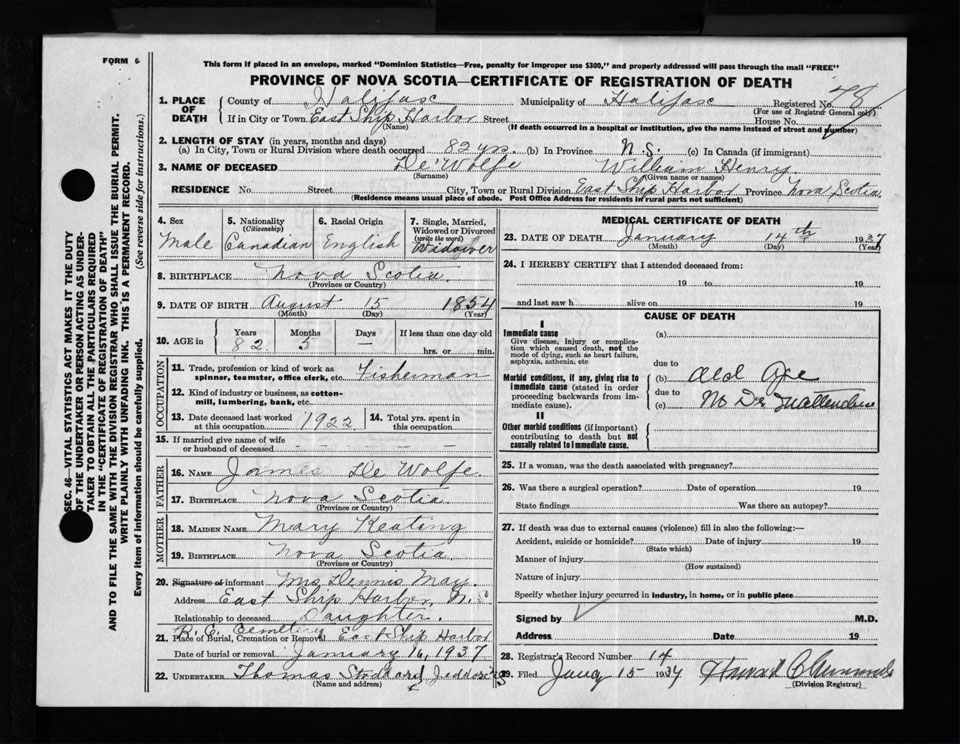 FORM 6
This form if placed in an envelope, marked "Dominion Statistics—Free, penalty for improper use $300," and properly addressed will pass through the mail "FREE"
PROVINCE OF NOVA SCOTIA—CERTIFICATE OF REGISTRATION OF DEATH
SEC. 46—VITAL STATISTICS ACT MAKES IT THE DUTY
OF THE UNDERTAKER OR PERSON ACTING AS UNDER-
TAKER TO OBTAIN ALL THE PARTICULARS REQUIRED
IN THE "CERTIFICATE OF REGISTRATION OF DEATH"
AND TO FILE THE SAME WITH THE DIVISION REGISTRAR WHO SHALL ISSUE THE BURIAL PERMIT.
WRITE PLAINLY WITH UNFADING INK. THIS IS A PERMANENT RECORD.
Every item of information should be carefully supplied. (See reverse side for instructions.)
1. PLACE OF DEATH County of Halifax Municipality of Halifax Registered No. 78
(For use of Registrar General only)
If in City or Town East Ship Harbor Street House No.
(Name) (If death occurred in a hospital or institution, give the name instead of street and number)
2. LENGTH OF STAY (in years, months and days)
(a) In City, Town or Rural Division where death occurred 82 yrs. (b) In Province N.S. (c) In Canada (if immigrant)
3. NAME OF DECEASED De Wolfe William Henry
(Surname) (Given name or names)
RESIDENCE No. Street City, Town or Rural Division East Ship Harbor Province Nova Scotia
(Residence means usual place of abode. Post Office Address for residents in rural parts not sufficient)
4. Sex Male
5. Nationality (Citizenship) Canadian
6. Racial Origin English
7. Single, Married, Widowed or Divorced (write the word) Widower
8. BIRTHPLACE Nova Scotia
(Province or Country)
9. DATE OF BIRTH August 15 1854
(Month) (Day) (Year)
10. AGE in Years Months Days If less than one day old
82 5 — hrs. or min.
OCCUPATION
11. Trade, profession or kind of work as
spinner, teamster, office clerk, etc. Fisherman
12. Kind of industry or business, as cotton-
mill, lumbering, bank, etc.
13. Date deceased last worked at this occupation 1922
14. Total yrs. spent in this occupation
15. If married give name of wife
or husband of deceased — — — —
FATHER
16. NAME James De Wolfe
17. BIRTHPLACE Nova Scotia
(Province or Country)
MOTHER
18. MAIDEN NAME Mary Keating
19. BIRTHPLACE Nova Scotia
(Province or Country)
20. Signature of informant Mrs Dennis May.
Address East Ship Harbor, N.S
Relationship to deceased Daughter.
R. C. Cemetery
21. Place of Burial, Cremation or Removal East Ship Harbor
Date of burial or removal January 16, 1937
22. UNDERTAKER Thomas Stoddard
(Name and address)
MEDICAL CERTIFICATE OF DEATH
23. DATE OF DEATH January 14th 1937
(Month) (Day) (Year)
24. I HEREBY CERTIFY that I attended deceased from:
19 to 19
and last saw h alive on 19
CAUSE OF DEATH
I
Immediate cause
Give disease, injury or complica-
tion which caused death, not the
mode of dying, such as heart failure,
asphyxia, asthenia, etc
(a)
due to
Morbid conditions, if any, giving rise to
immediate cause (stated in order
proceeding backwards from im-
mediate cause).
(b) Old Age
due to
(c) No Dr
II
Other morbid conditions (if important)
contributing to death but not
causally related to immediate cause.
25. If a woman, was the death associated with pregnancy?
26. Was there a surgical operation? Date of operation 19
State findings Was there an autopsy?
27. If death was due to external causes (violence) fill in also the following:—
Accident, suicide or homicide? Date of injury 19
(State which)
Manner of injury
(How sustained)
Nature of injury
Specify whether injury occurred in industry, in home, or in public place
Signed by M.D.
Address Date 19
28. Registrar's Record Number 14
29. Filed Jany 15 1937
(Division Registrar)